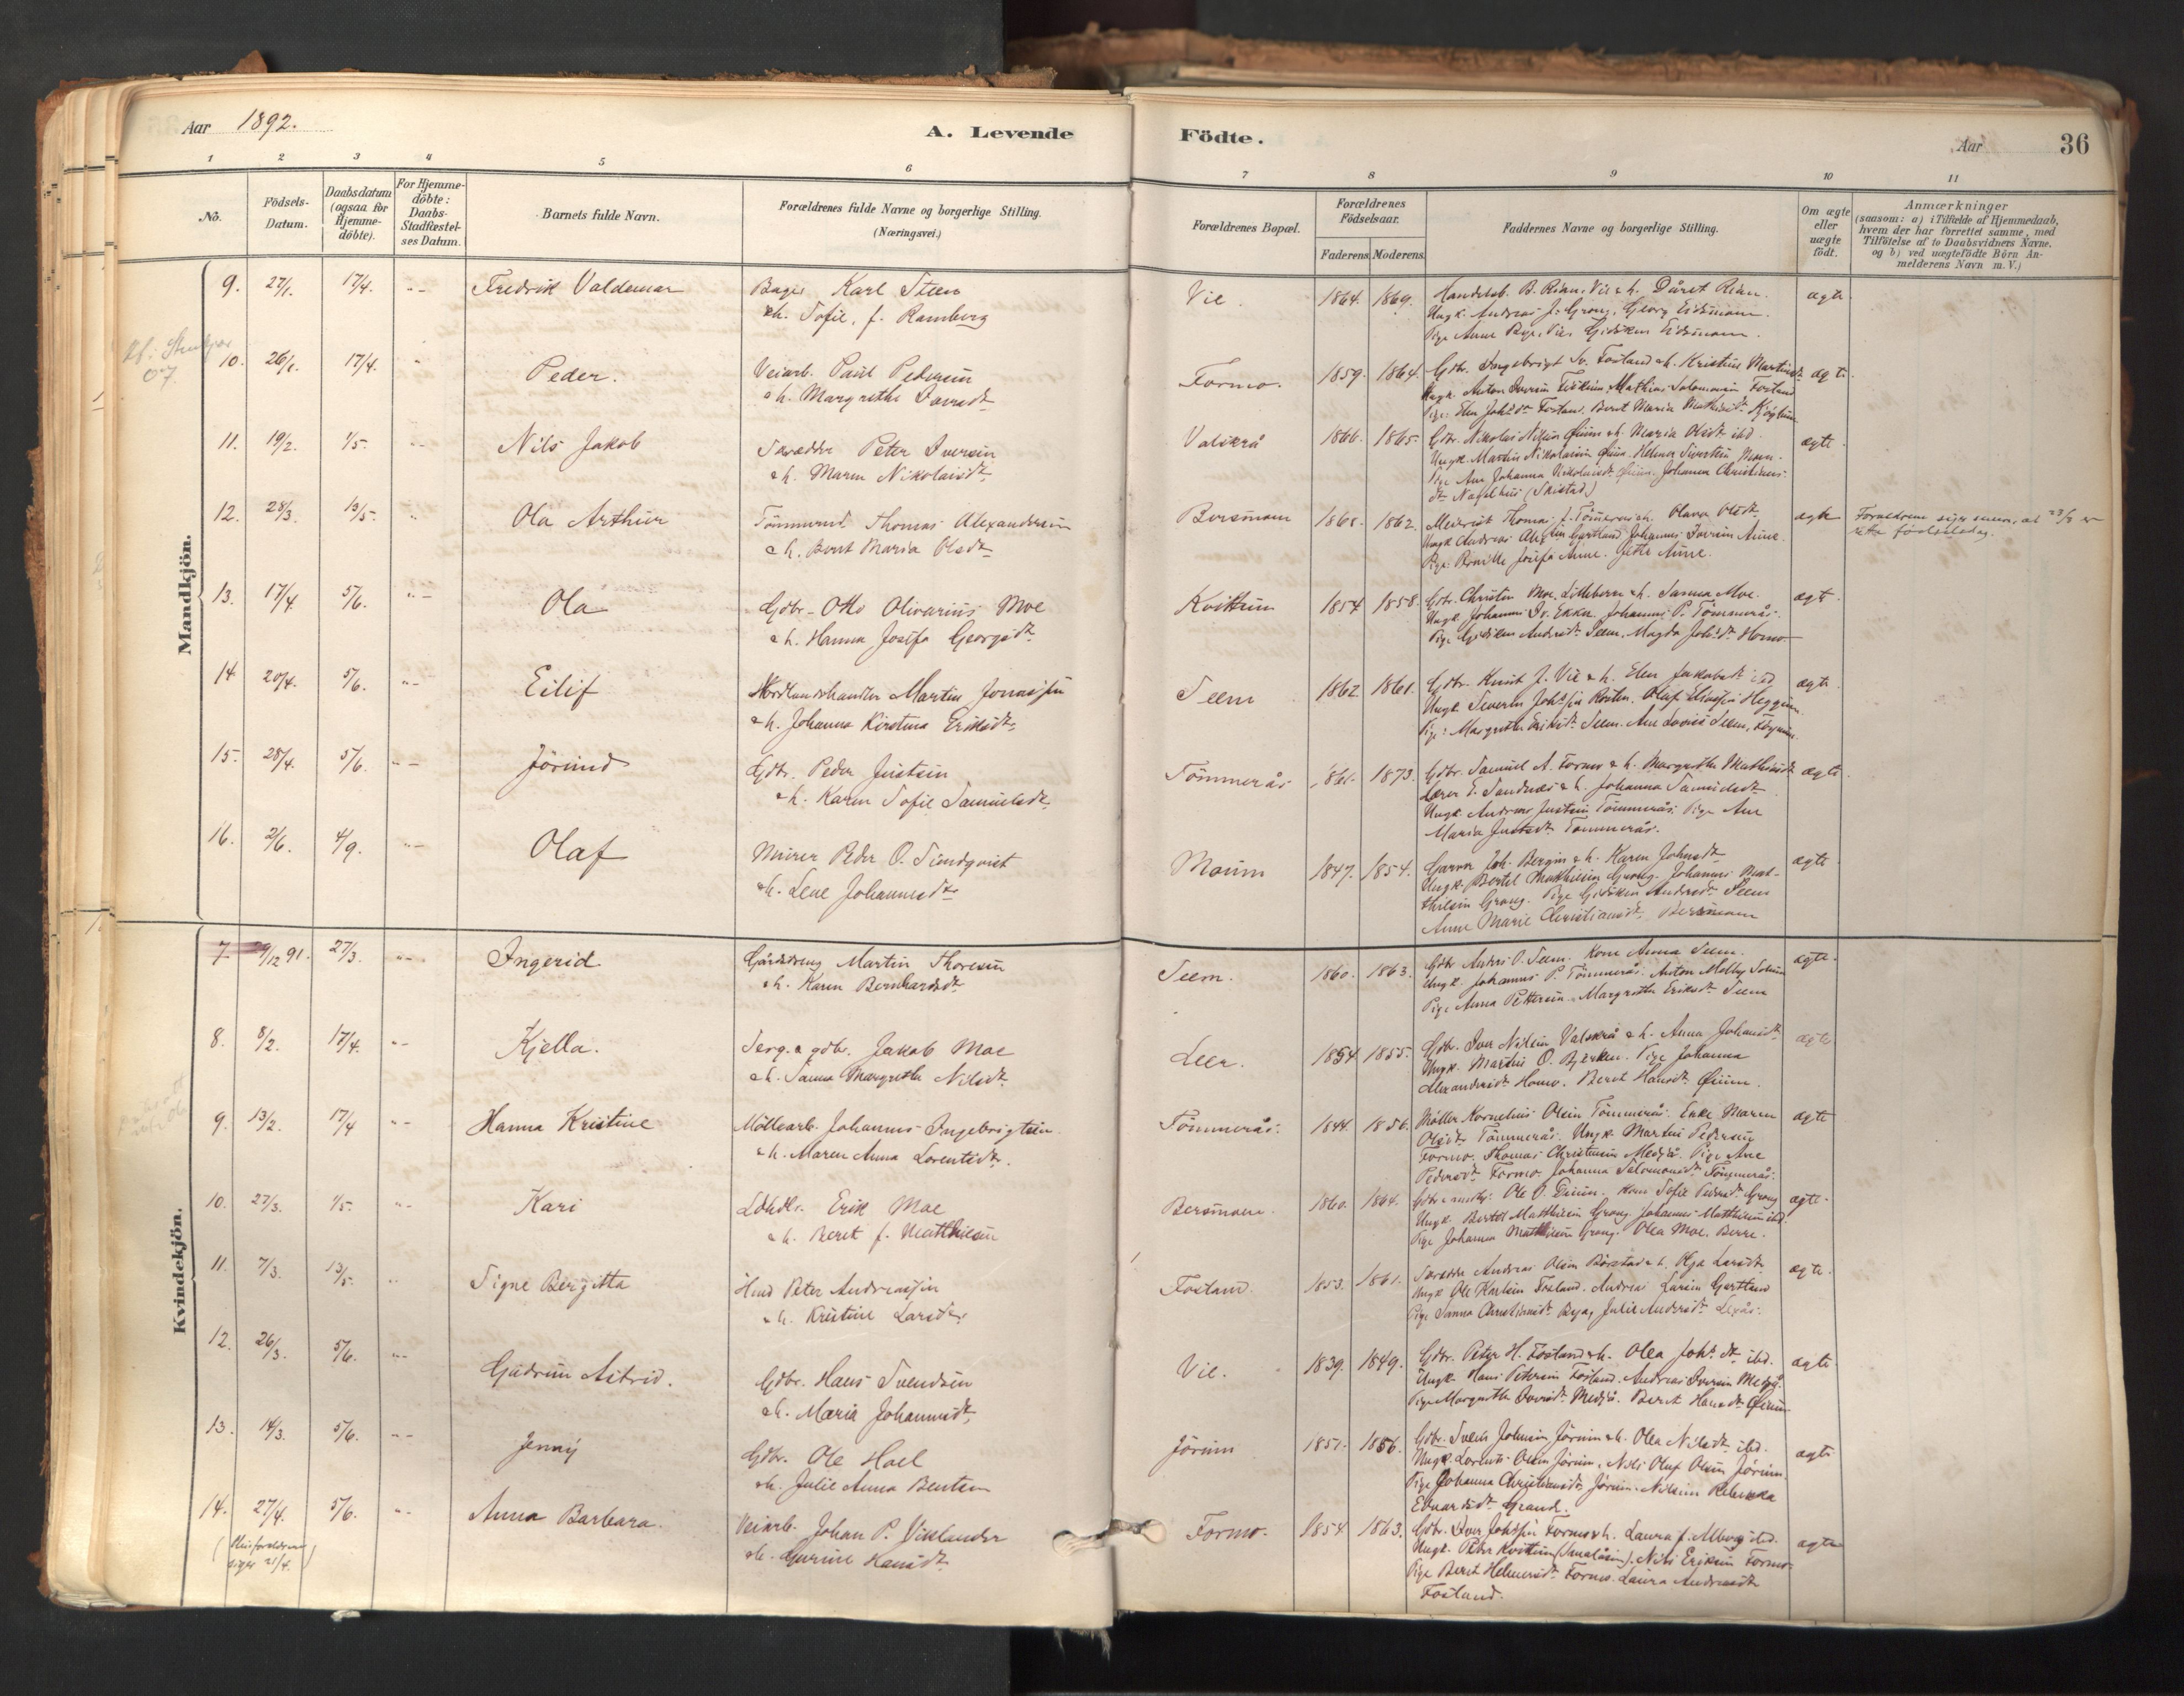 Aar 1892.
A. Levende
Födte.
Aar
36
1 2 3 4 5 6
7 8 9 10 11
No.
Födsels-Datum.
Daabsdatum (ogsaa for Hjemme-döbte).
For Hjemme-döbte: Daabs-Stadfæstel-ses Datum.
Barnets fulde Navn.
Forældrenes fulde Navne og borgerlige Stilling.
(Næringsvei.)
Forældrenes Bopæl.
Forældrenes Födselsaar.
Faderens. Moderens.
Faddernes Navne og borgerlige Stilling.
Om ægte eller uægte födt.
Anmærkninger
(saasom: a) i Tilfælde af Hjemmedaab,
hvem der har forrettet samme, med
Tilföielse af to Daabsvidners Navne,
og b) ved uægtefödte Börn An-
melderens Navn m. V.)
Mandkjön.
9. 27/1. 17/4. Fredrik Valdemar
Bager Karl Steen
& h. Sofie, f. Ramberg
Vie. 1864. 1869.
Handelsb. B. Rian, Vie & h. Dåret Rian.
Ungk. Andreas J. Grong, Georg Eidsmoen.
Pige Anne Rye, Vie, Gjediken Eidsmoen.
ægte
10. 26/1. 17/4. Peder.
Veiarb. Paul Pedersen
& h. Margrethe Iversdt
Formo. 1859. 1864.
Gdbr. Ingebrigt Iv. Fosland & h. Kristine Martinsdt
Ungk. Anton Iversen Mathias Salomonsen Fosland
Pige: Elen Johsdt Fosland. Beret Maria
ægte
11. 19/2. 1/5. Nils Jakob
Skrædder Peter Iversen
& h. Maren Nikolaisdt
Valskrå 1866. 1865.
Gdbr. Nikolai Nilsen Øium & h. Maria Olsdt ibd.
Ungk. Martin Nikolaisen Øium. Helmer Sivertsen Moen.
Pige Ane Johanna Nikolaisdt Øium. Johanna Christians-
dt Nagelhus (Skistad)
ægte
12. 28/3. 13/5. Ola Arthur
Tömmermd. Thomas Alexandersen
& h. Beret Maria Olsdt
Bersmoen 1868. 1862.
Olava Olsdt
Ungk. Andreas Gartland Johannes Iversen Aune.
Pige: Pernille Josefa Aune. Jette Aune.
ægte
Forældrene siger senere, at 23/3 er
rette födselsdag.
13. 17/4. 5/6. Ola
Gdbr. Otto Olivarius Moe
& h. Hanna Josefa Georgsdt
Kvittum 1854 1858.
Gdbr. Christen Moe, Litlebern & h. Sanna Moe.
Ungk. Johannes Iv. Ekker, Johannes P. Tömmerås.
Pige Gjediken Andrsdt Seem. Magda Johsdt Homo
ægte
14 20/4. 5/6. Eilif
Nordlandshandler Martin Jonassen
& h. Johanna Kirstina Eriksdt
Seem 1862 1861.
Gdbr. Knut J. Vie & h. Elen Jakobsdt ibd
Ungk. Severin Johsen Rosten. Olaf Eliassen Heggum.
Pige: Margrethe Eriksdt Seem. Ane Lovise Seem,
ægte
15. 28/4. 5/6. Jörund
Gdbr. Peder Justsen
& h. Karen Sofie Samuelsdt
Tömmerås 1861. 1873.
Gdbr. Samuel A. Formo & h. Margrethe Mathiasdt
Lærer E. Sandnes & h. Johanna Samuelsdt
Ungk. Andreas Justsen Tömmerås. Pige Ane
Maria Justsdt Tömmerås.
ægte
16. 2/6. 4/9. Olaf
Murer Peder O. Sundqvist
& h. Lene Johannesdt
Moum 1847. 1854.
Garver Joh. Bergin & h. Karen Johnsdt
Ungk. Bertel Mathiesen Grong. Johannes Mat-
thiesen Grong. Pige Gjediken Andrsdt Seem
Anne Marie Christiansdt Bersmoen
ægte
Kvindekjön.
7. 29/12 91. 27/3. Ingerid
Gårdsdreng Martin Thoresen
& h. Karen Bernhardsdt
Seem. 1860. 1863.
Gdbr Anders O. Seem. Kone Anna Seem.
Ungk. Johannes P. Tömmerås. Anton
Pige Anna Pettersen. Margrethe Eriksdt Seem
ægte
8. 8/2. 17/4. Kjella.
Serg. & gdbr. Jakob Moe
& h. Sanna Margrethe Nilsdt
Leer. 1854 1855.
Gdbr. Iver Nilsen Valskrå & h. Anna Johansdt
Ungk. Martin O. Bjerken. Pige Johanna
Alexandersdt Homo. Beret Hansdt Øium.
ægte
9. 13/2. 17/4 Hanna Kristine
Möllearb. Johannes Ingebrigtsen
& h. Maren Anna Lorentsdt.
Tömmerås. 1844. 1856.
Möller Kornelius Olsen Tömmerås. Enke Maren
Olsdt Tömmerås. Ungk. Martin Pedersen
Formo. Thomas Christensen Medjå. Pige Ane
Pedersdt Formo Johanna Salomonsdt Tömmerås.
ægte
10. 27/3. 1/5. Kari
Ldhdlr. Erik Moe
& h. Beret f. Matthiesen
Bersmoen. 1860. 1864.
Ole P. Kone Sofie Pedersdt Grong
Ungk. Bertel Matthiesen Grong. Johannes Matthiesen ibd.
Pige Johanna Matthiesen Grong. Olea Moe, Berre.
ægte
11. 7/3. 13/5. Signe Bergitta
Hmd Peter Andreassen
& h. Kristine Larsdt.
Fosland. 1853. 1861.
Skrædder Andreas Olsen & h. Olga Larsdt
Ungk Ole Karlsen Fosland. Andreas Larsen Gartland
Pige Sanna Christiansdt Julie Andersdt
ægte
12. 26/3. 5/6. Gudrun Astrid.
Gdbr. Hans Svendsen
& h. Maria Johannesdt
Vie. 1839. 1849.
Gdbr. Peter H. Fosland & h. Olea Johsdt ibd.
Ungk. Hans Petersen Fosland. Andreas Iversen Medjå.
Pige Margrethe Iversdt Medjå. Beret Hansdt Øium
ægte
13. 14/3. 5/6. Jenny
Gdbr. Ole Hoel
& h. Julie Anna Bentsen
Jörum 1851. 1856.
Gdbr. Svein Johnsen Jörum & h. Olea Nilsdt ibd.
Ungk. Lorents Olsen Jörum. Nils Oluf Olsen Jörum.
Pige Johanna Christiansdt Jörum. Rebekka
Edvardsdt Grande.
ægte
14. 27/4. 5/6. Anna Barbara.
(Men forældrene
siger 21/4.)
Veiarb. Johan P. Viklander
& h. Gurine Hansdt
Formo. 1854 1863.
Gdbr. Iver Johsen Formo & h. Laura f. Alberg ibd.
Ungk. Peter Kvittum (Smalåsen). Nils Eriksen Formo.
Pige Beret Helmersdt Formo. Laura Andreasdt
Fosland.
ægte